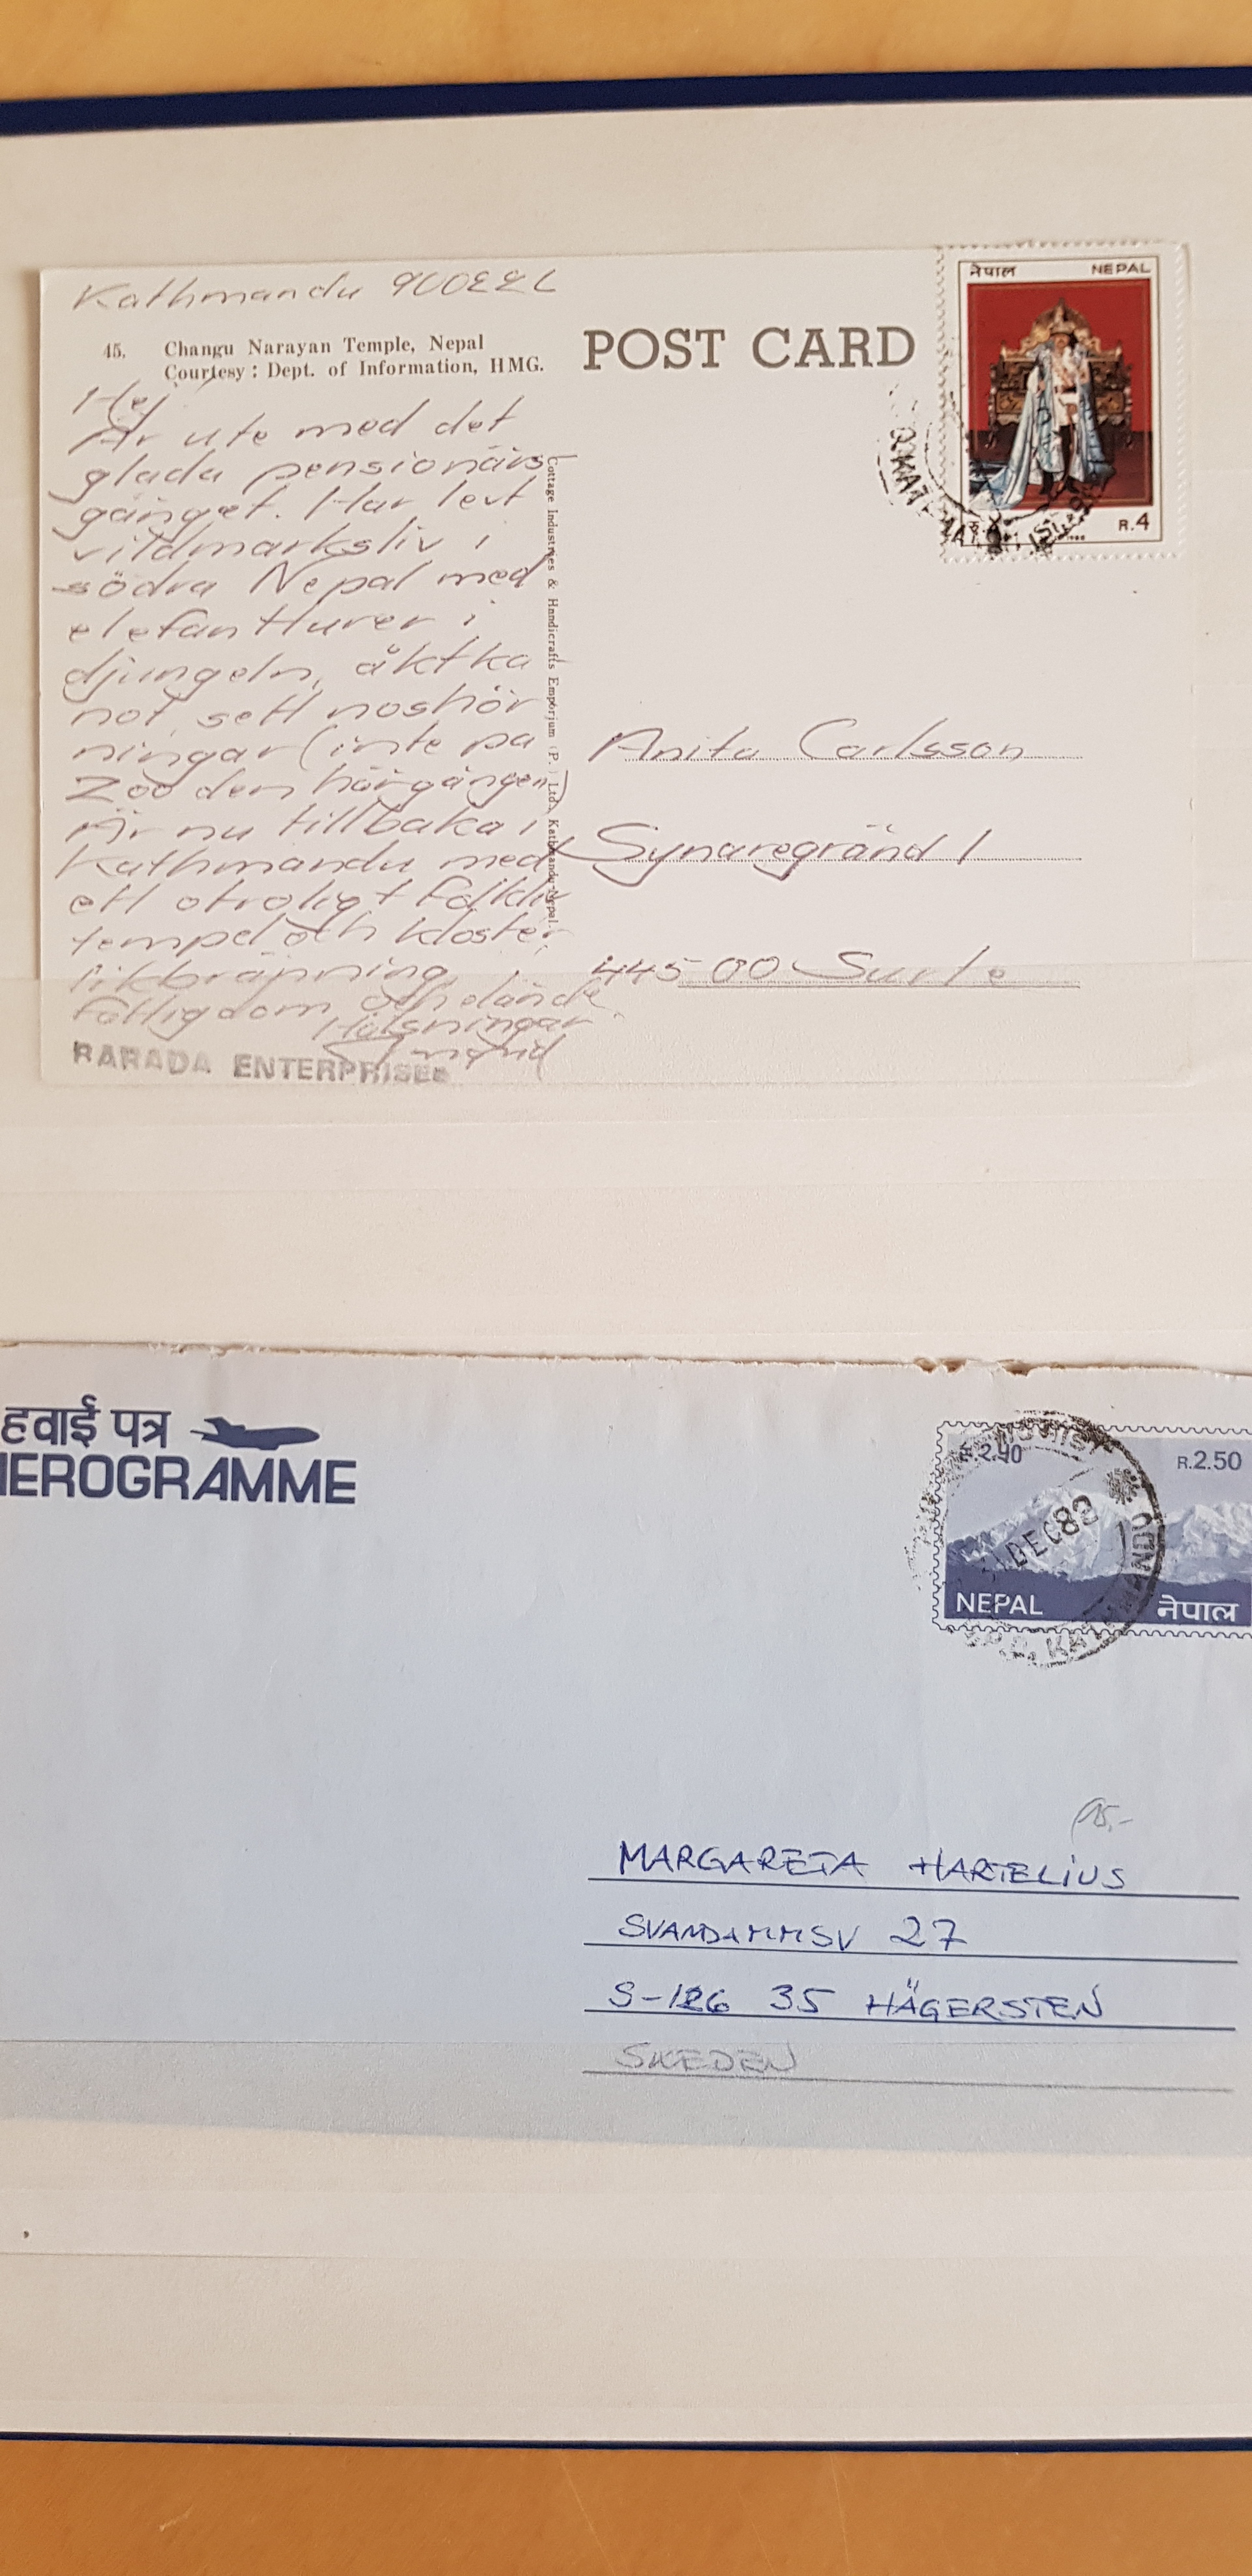 Kathmandu
45. Changu Narayan Temple, Nepal
Courtesy : Dept. of Information, HMG.
POST CARD
नेपाल NEPAL
R.4
Hej
Är ute med det
glada pensionärs-
gänget. Har levt
vildmarksliv i
södra Nepal med
elefantturer i
djungeln, åkt ka
not, sett noshör
ningar (inte på
Zoo den härgången)
Är nu tillbaka i
Kathmandu med
ett otroligt folkliv
tempel och kloster,
likbränning,
fattigdom och elände
Hälsningar
RARADA ENTERPRISES
Cottage Industries & Handicrafts Emporium (P.) Ltd., Kathmandu-Nepal.
Anita Carlsson
Synaregränd 1
445 00 Surte
हवाई पत्र
AEROGRAMME
R.2.50
NEPAL नेपाल
DEC 88
15,-
MARGARETA HARTELIUS
SVANDAMMSV 27
S-126 35 HÄGERSTEN
SWEDEN